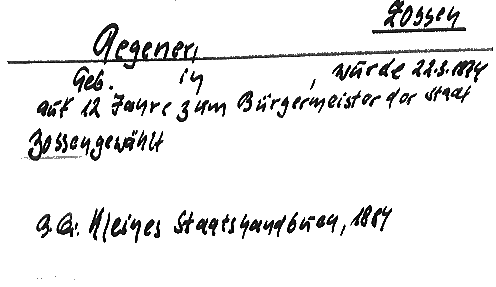 Zossen
Aegener,
Geb. in , wurde 22.3.1874
auf 12 Jahre zum Bürgermeister der Stadt
Zossen gewählt
Kleines Staatshandbuch, 1884